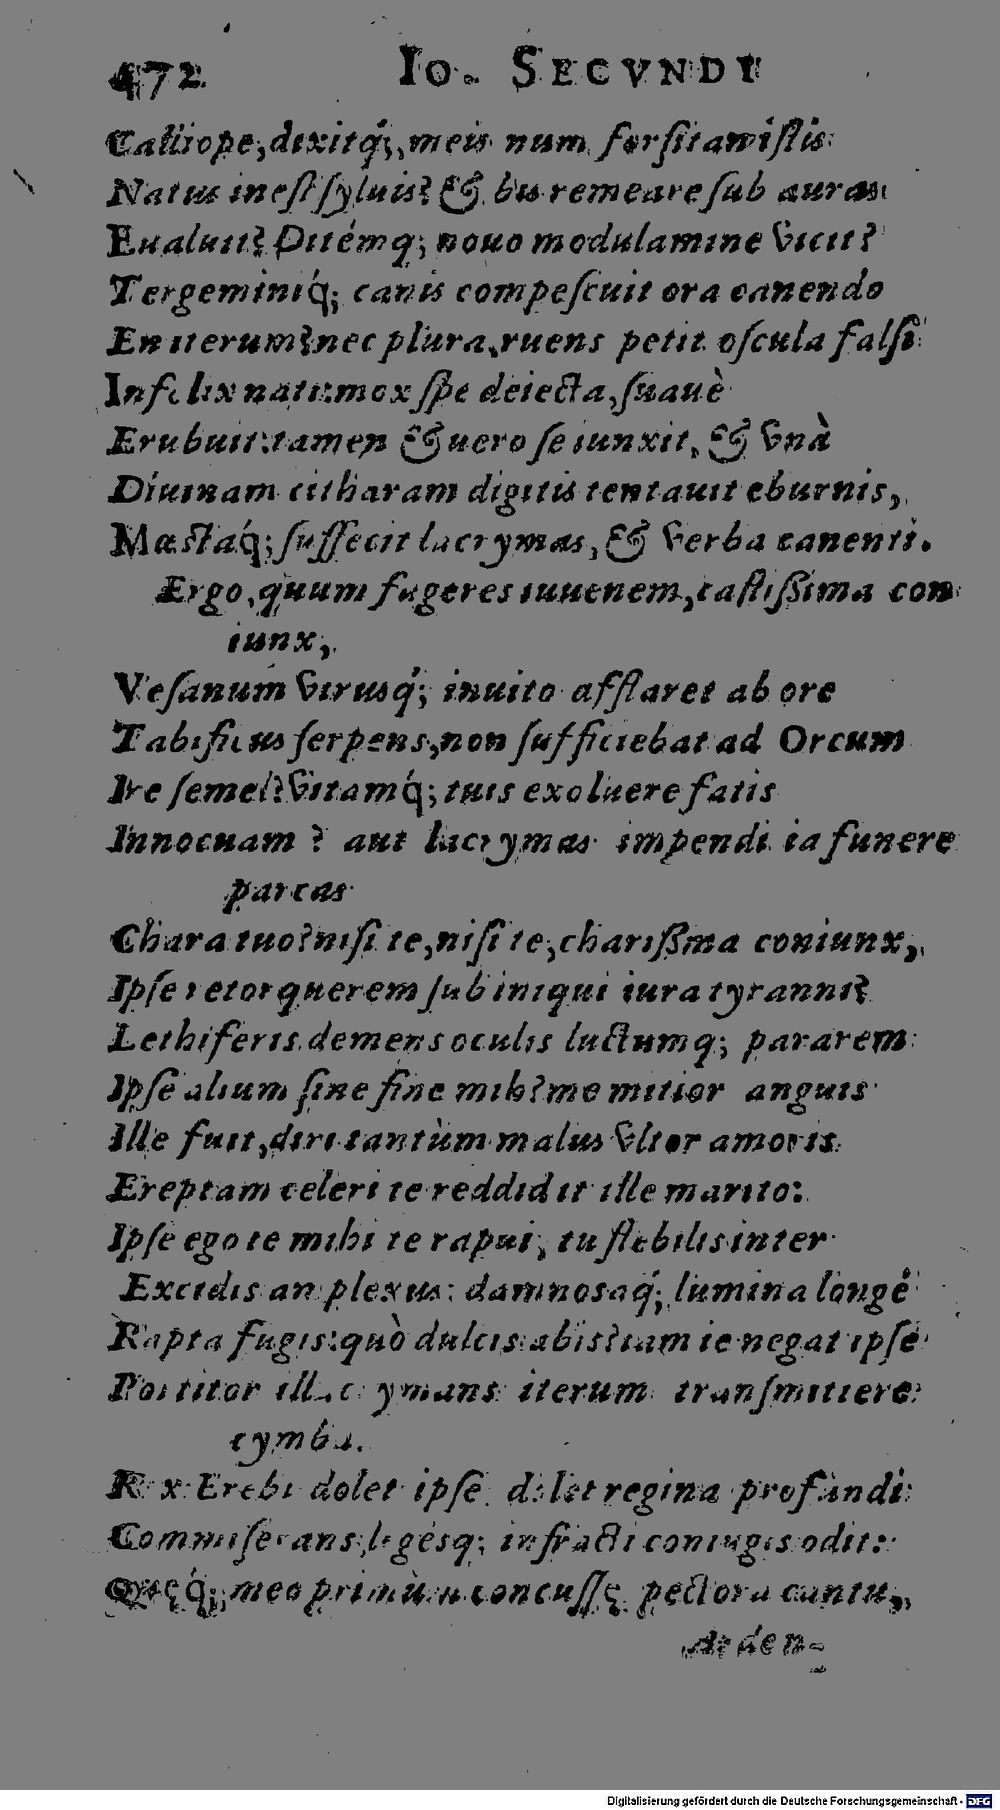 472 Io. SECVNDI
Calliope, dixitq́;, meis num forsitan istis
Natus inest syluis? & huc remeare sub auras
Eualuit? Ditémq; nouo modulamine vicit?
Tergeminiq́; canis compescuit ora canendo
En iterum? nec plura, ruens petit oscula falsi
Infelix nati: mox spe deiecta, suauè
Erubuit: tamen & uero se iunxit, & vnà
Diuinam citharam digitis tentauit eburnis,
Mœstaq́; suffecit lacrymas, & verba canenti.
Ergo, quum fugeres iuuenem, castissima con
iunx,
Vesanum virusq́; inuito afflaret ab ore
Tabificus serpens, non sufficiebat ad Orcum
Ire semel? vitamq́; tuis exoluere fatis
Innocuam? aut lacrymas impendi ia funere
parcas
Chara tuo? nisi te, nisi te, charißima coniunx,
Ipse retorquerem sub iniqui iura tyranni?
Lethiferis demens oculis luctumq; pararem
Ipse alium sine fine mihi? me mitior anguis
Ille fuit, diri tantùm malus vltor amoris
Ereptam celeri te reddidit ille marito:
Ipse ego te mihi te rapui, tu flebilis inter
Excidis amplexus: damnosaq́; lumina longè
Rapta fugis: quò dulcis abis? iam te negat ipse
Portitor illacrymans iterum transmittere
cymba.
Rex Erebi dolet ipse, dolet regina profundi
Commiserans, legésq; infracti coniugis odit:
Quęq́; meo primùm concussę pectora cantu,
Arden-
Digitalisierung gefördert durch die Deutsche Forschungsgemeinschaft - DFG